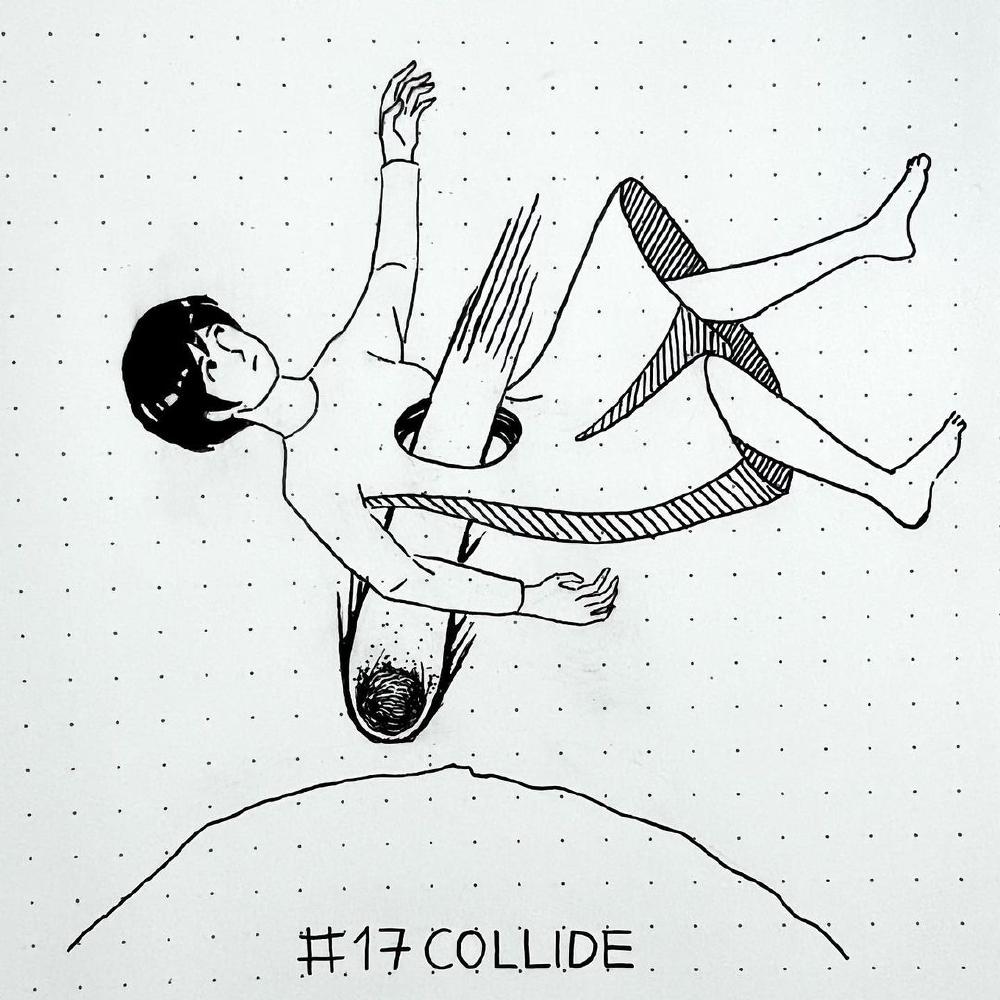 #17 COLLIDE